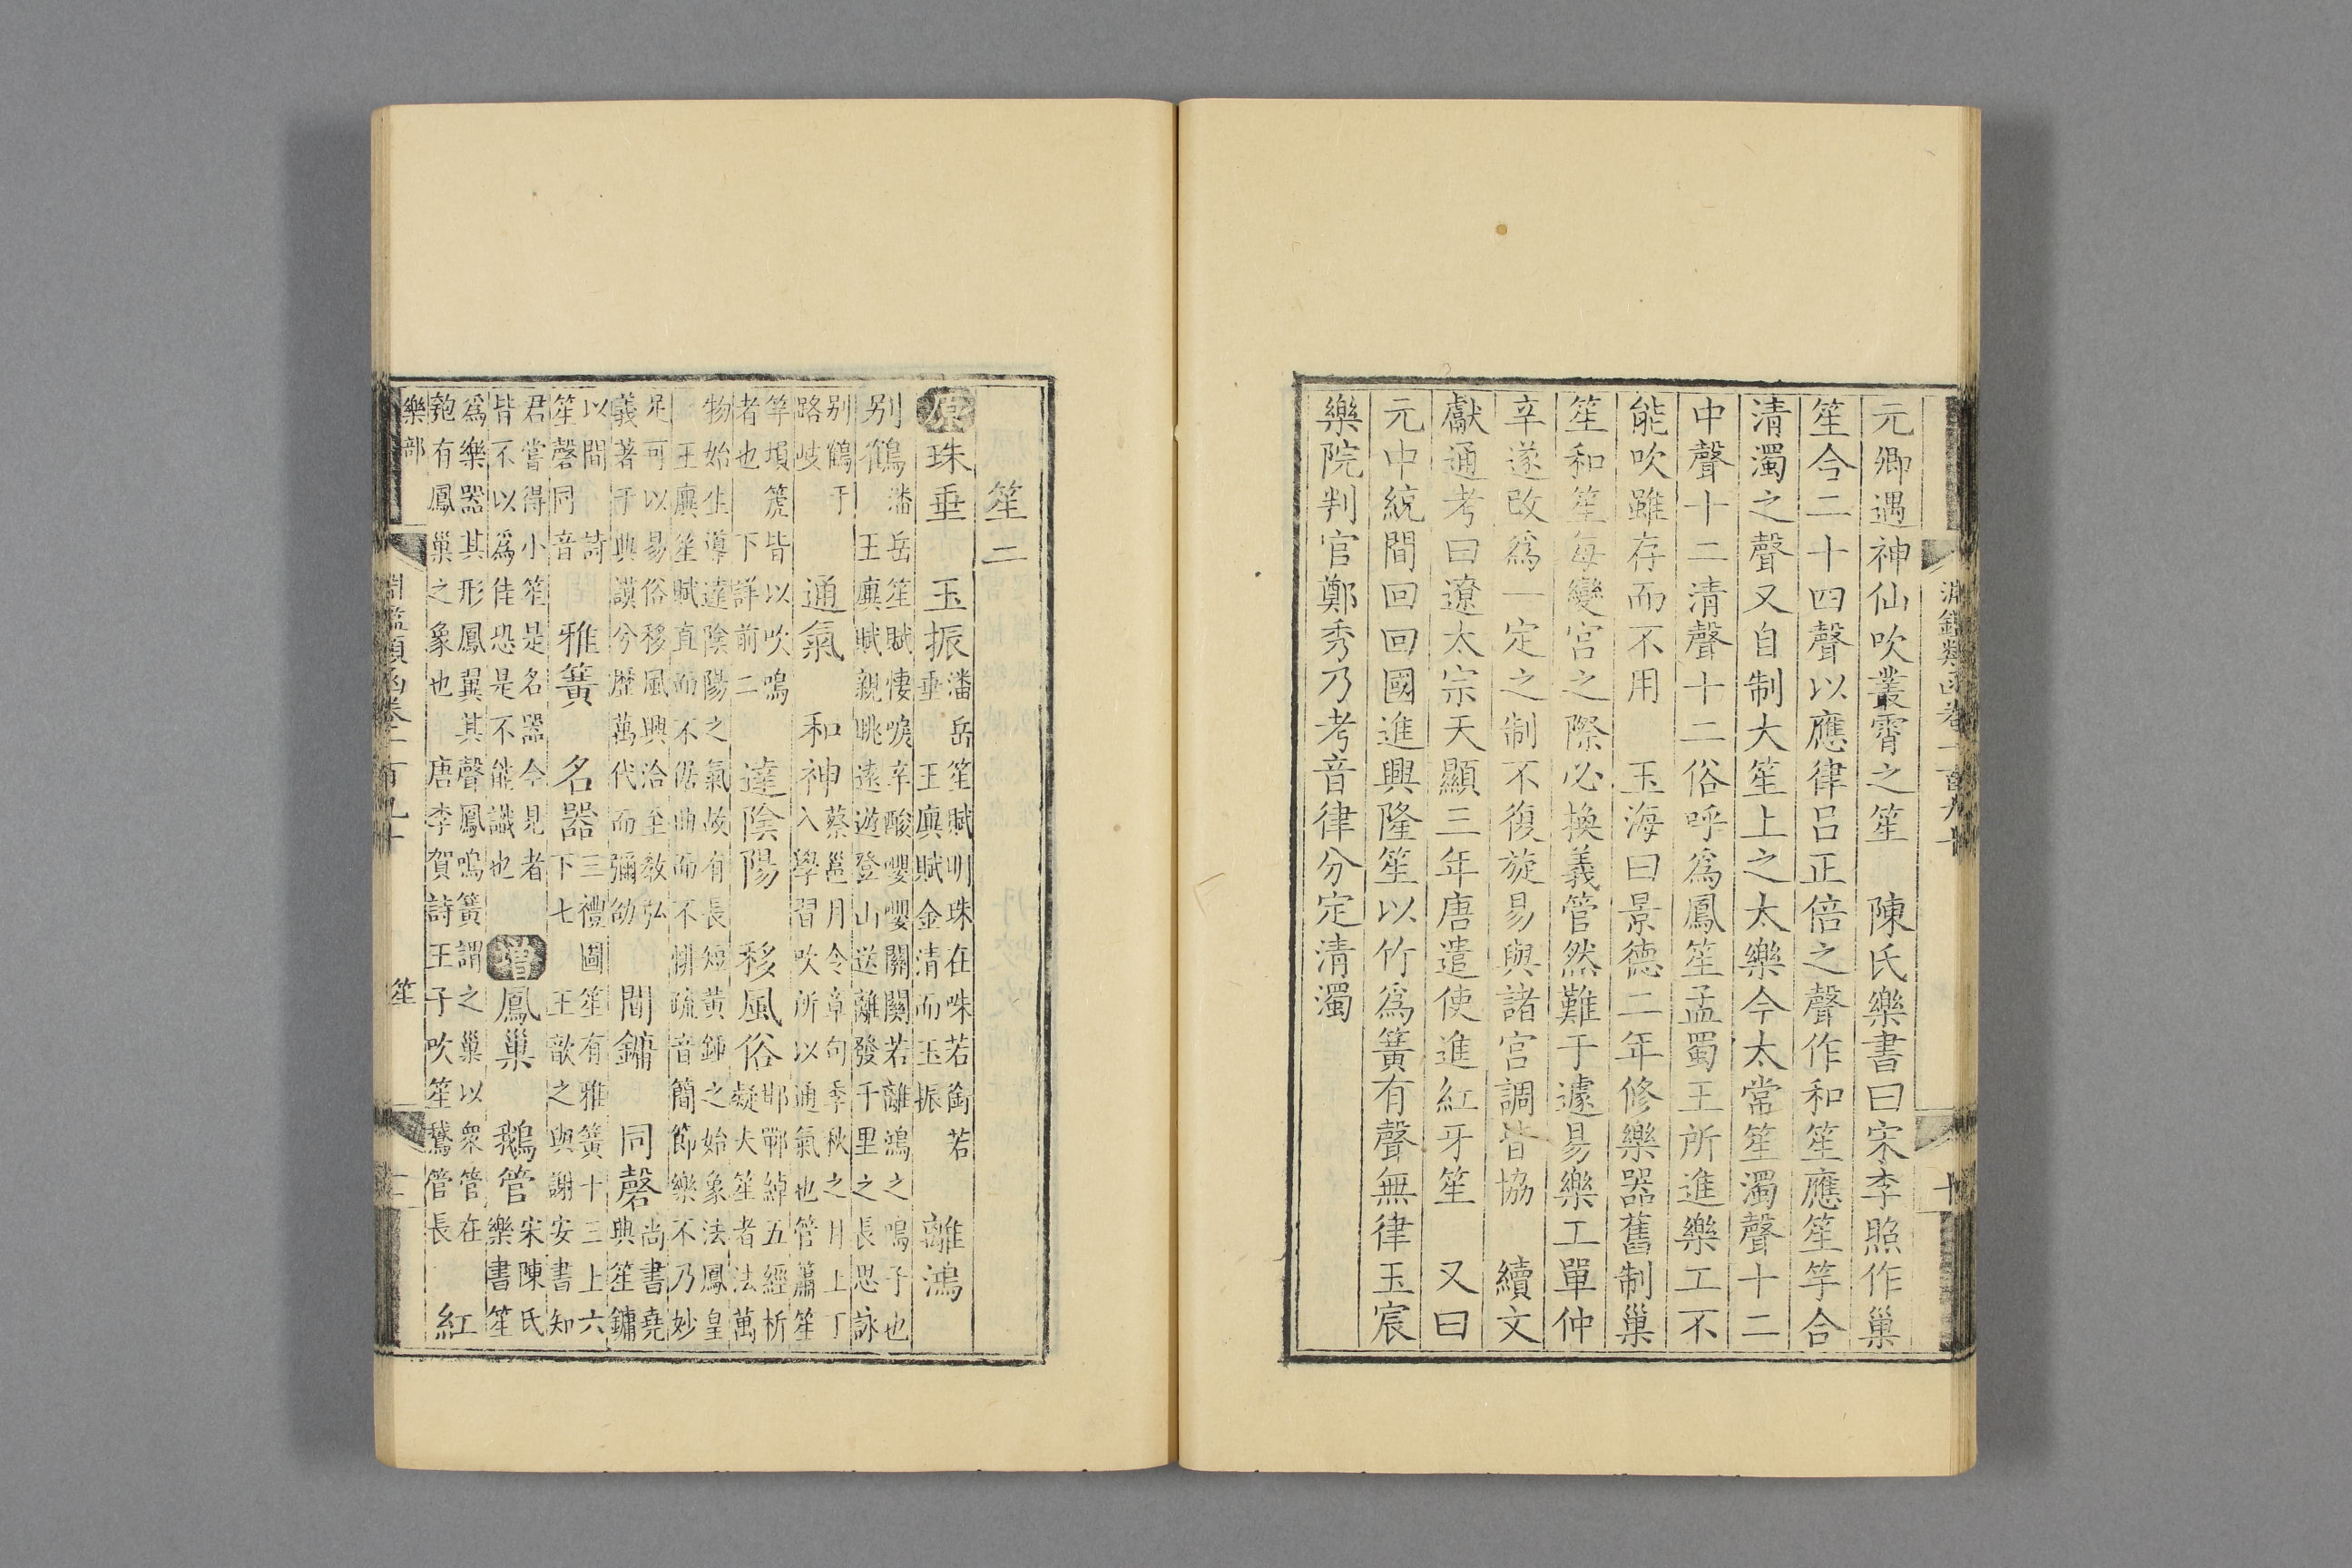 淵鑑類函卷一百九十
十
元卿遇神仙吹叢霄之笙　陳氏樂書曰宋李照作巢
笙合二十四聲以應律呂正倍之聲作和笙應笙竽合
清濁之聲又自制大笙上之太樂今太常笙濁聲十二
中聲十二清聲十二俗呼為鳳笙孟蜀王所進樂工不
能吹雖存而不用　玉海曰景德二年修樂器舊制巢
笙和笙每變宮之際必換義管然難于遽易樂工單仲
辛遂改為一定之制不復旋易與諸宮調皆協　續文
獻通考曰遼太宗天顯三年唐遣使進紅牙笙　又曰
元中統間回回國進興隆笙以竹為簧有聲無律玉宸
樂院判官鄭秀乃考音律分定清濁
笙二
原珠垂　玉振潘岳笙賦明珠在咮若銜若垂　王廙賦金清而玉振　離鴻
別鶴潘岳笙賦悽唳辛酸嚶嚶關關若離鴻之鳴子也　王廙賦親眺遠遊登山送離發千里之長思詠
別鶴于路岐　通氣　和神蔡邕月令章句季秋之月上丁入學習吹所以通氣也管簫笙
竽塤篪皆以吹鳴者也　下詳前二　達陰陽　移風俗邯鄲綽五經析疑夫笙者法萬
物始生導達陰陽之氣故有長短黃鍾之始象法鳳皇　王廙笙賦直而不倨曲而不悱疏音簡節樂不乃妙
足可以易俗移風興洽至教弘義著于典謨兮歷萬代而彌劭　間鏞　同磬尚書堯典笙鏞
以間　詩笙磬同音　雅簧　名器三禮圖笙有雅簧十三上六下七　王歆之與謝安書知
君嘗得小笙是名器今見者皆不以為佳恐是不能識也　增鳳巢　鵝管宋陳氏樂書笙
為樂器其形鳳翼其聲鳳鳴簧謂之巢以衆管在匏有鳳巢之象也　唐李賀詩王子吹笙鵞管長　紅
樂部
淵鑑類函卷一百九十
笙